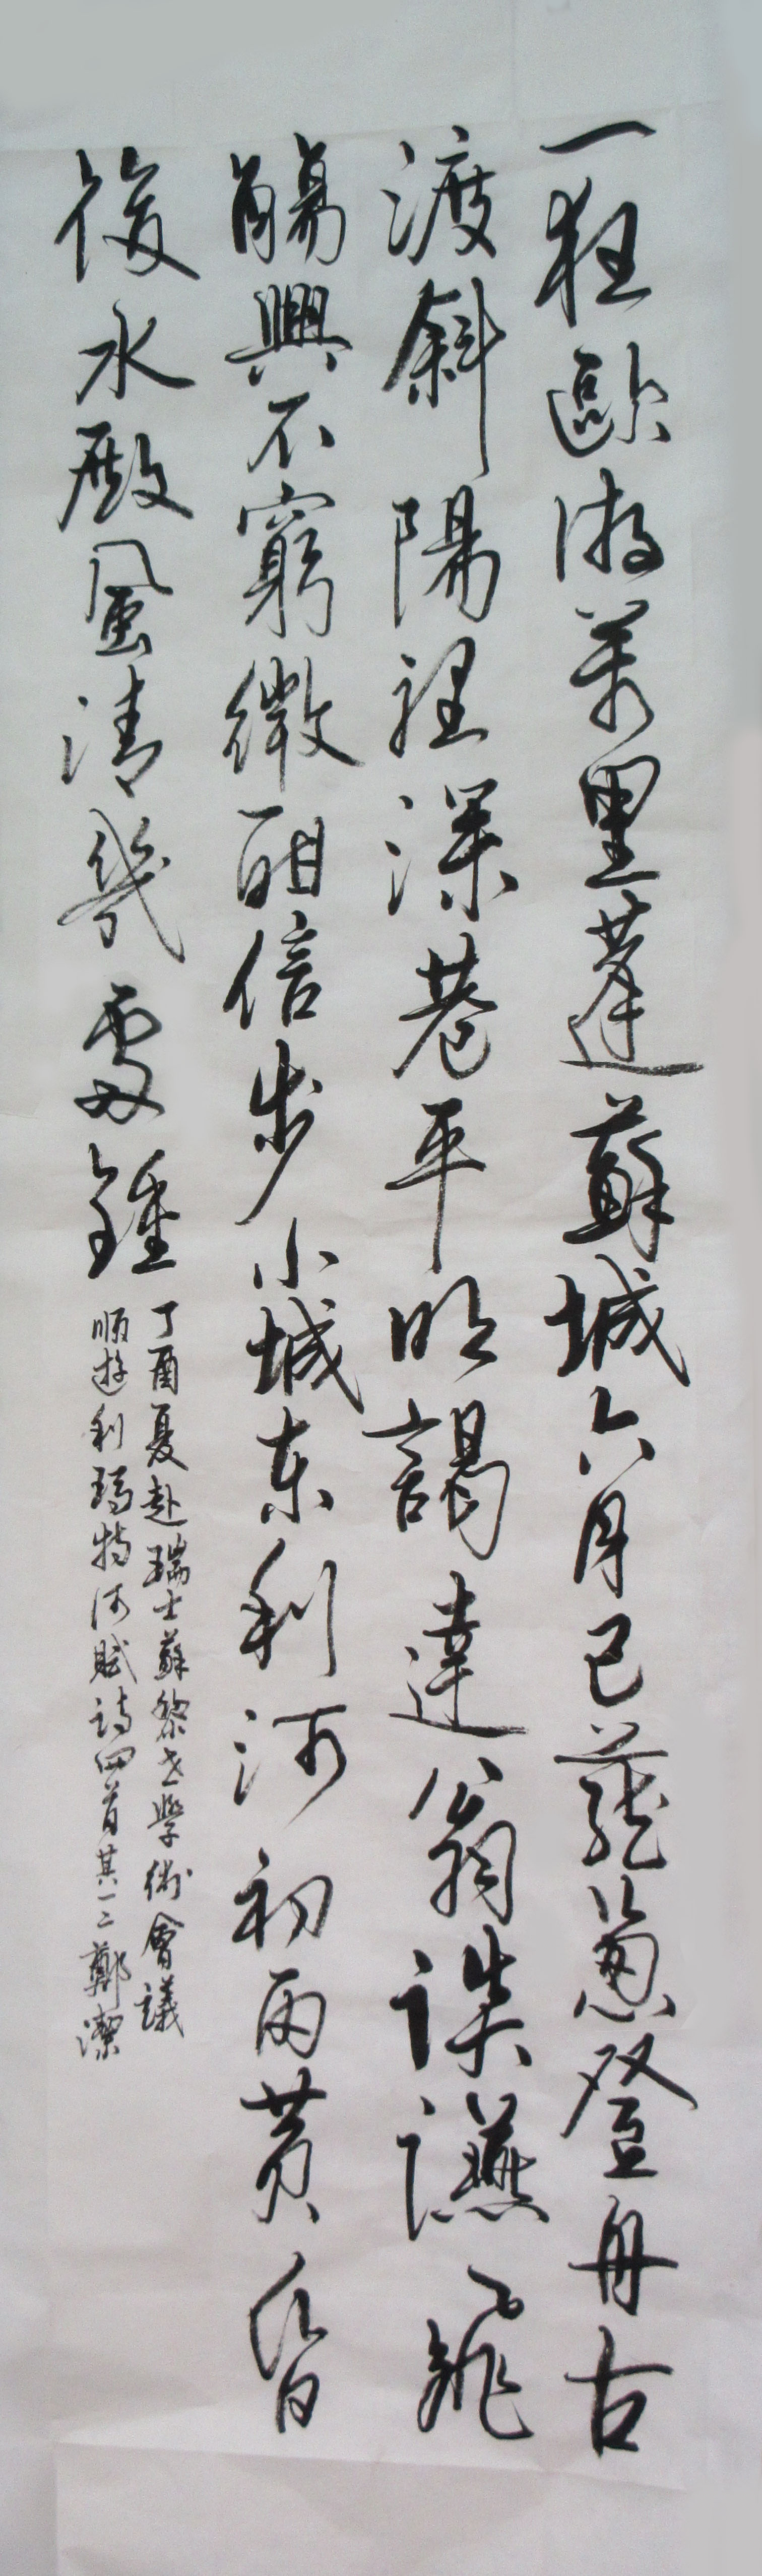 一狂歐游萬里蓬蘇城六月已蘢蔥登舟古
渡斜陽裡深巷平明謁達翁談讌飛
觴興不窮微酣信步小城東利河初雨黃昏
後水殿風清幾處鍾
丁酉夏赴瑞士蘇黎世學術會議
順遊利瑪特河賦詩四首其一二鄭潔